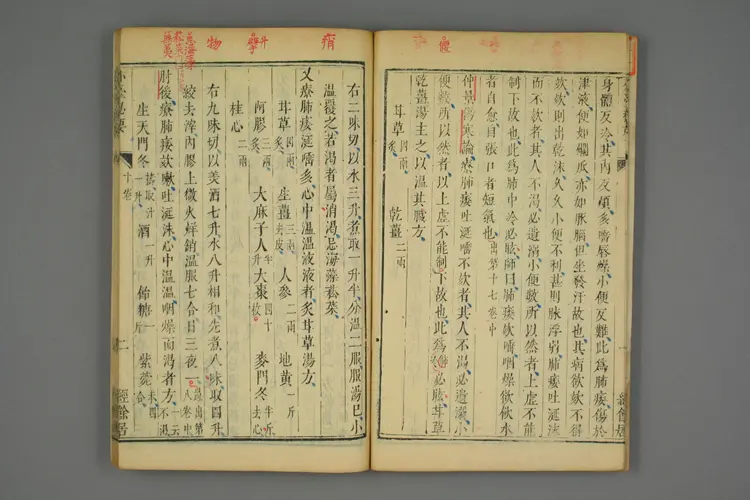 身體反冷其內反煩多唾唇燥小便反難此為肺痿傷於
津液便如爛瓜亦如豚腦但坐發汗故也其病欲欬不得
欬欬則出乾沫久久小便不利甚則脉浮弱肺痿吐涎沫
而不欬者其人不渴必遺溺小便數所以然者上虛不能
制下故也此為肺中冷必眩師曰肺痿欬唾咽燥欲飲水
者自愈自張口者短氣也出第十七卷中
仲景傷寒論療肺痿吐涎唾不欬者其人不渴必遺溺小
便數所以然者以上虛不能制下故也此為冷必眩甘草
乾薑湯主之以溫其臟方
甘草炙四兩 乾薑二兩
右二味切以水三升煮取一升半分溫二服服湯已小
溫覆之若渴者屬消渴忌海藻菘菜
又療肺痿涎唾多心中溫溫液液者炙甘草湯方
甘草四兩炙 生薑三兩去皮 人參二兩 地黃一斤
阿膠三兩炙 大麻子人半升 大棗四十枚 麥門冬半斤去心
桂心二兩
右九味切以美酒七升水八升相和先煮八味取四升
絞去滓內膠上微火烊銷溫服七合日三夜一出第八卷中
肘後療肺痿欬嗽吐涎沫心中溫溫咽燥而渴者方一云不渴
生天門冬搗取汁一升 酒一升 飴糖一斤 紫菀末四合
十卷
二
經餘居